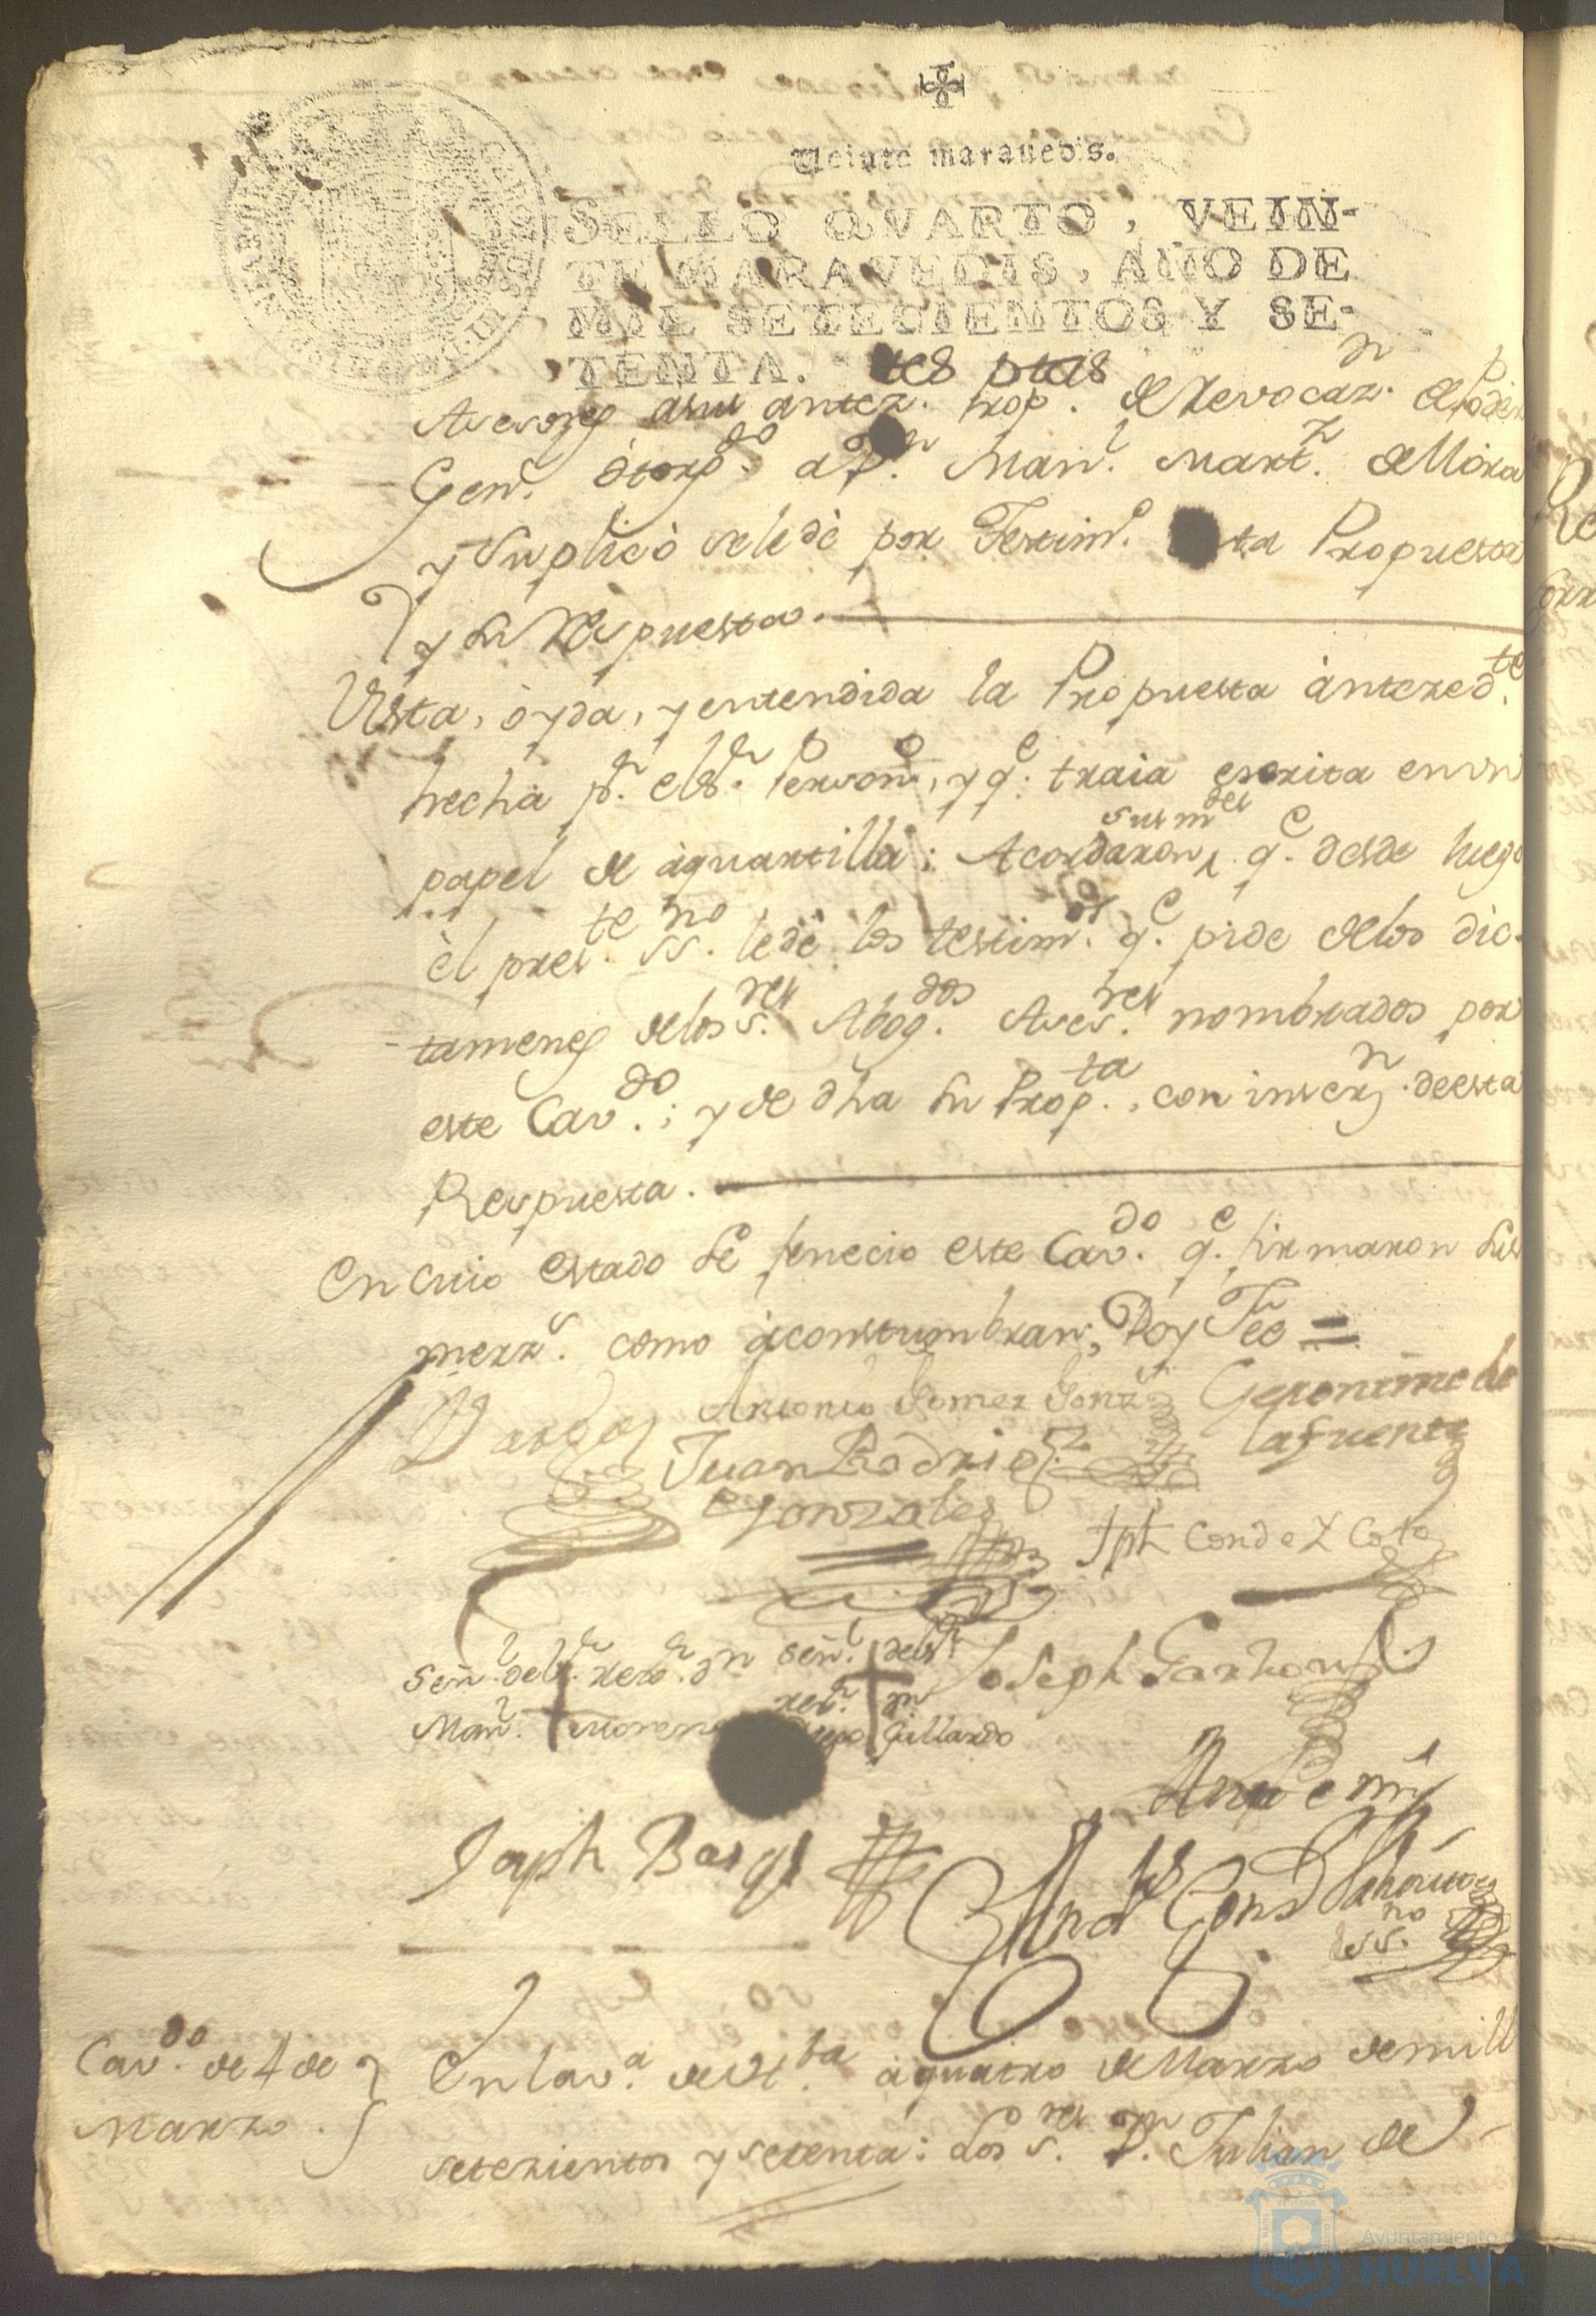 Veinte maravedis.
SELLO QVARTO, VEIN-
TE MARAVEDIS, AÑO DE
MIL SETECIENTOS Y SE-
TENTA.
Asesores antez. Prop. de Revocazn. de Poder
Genl. otorgdo. a Dn. Manl. Martz. de Mora
y Suplicò se le dè por Testimo. ta Propuesta
y su Respuesta.
Vista, òyda, y entendida la Propuesta àntezedte.
hecha pr. el Sr. Person, y qe. traia escrita en un
papel de àquartilla; Acordaron sus mdes qe. desde luego
èl preste. SSno. le dè los testimos. qe. pide de los dic-
tamenes de los Sres. Abogdos. Asesres. nombrados por
este Cavdo.; y de dha su Propta., con inserzn. de esta
Respuesta.
En cuio estado se fenecio este Cavdo. qe. firmaron sus
merzs. como àcostumbran; Doy Fee =
Barges Antonio Gomez Gonz Geronimo de
la Fuente
Juan Rodrigz.
Gonzales
Jph Conde Y Coto
Señl. del Sr. rexor. Dn señl. del Sr.
Manl. Moreno rexr. Dn
Diego Gillardo
Joseph Garzon
Joseph Barges
Ante mi
SSno.
Cavdo. de 4 de
Marzo.
En la va. de tba. à quatro de Marzo de mill
setezientos y setenta: Los Sres. Dn. Julian de
Ayuntamiento de
HUELVA